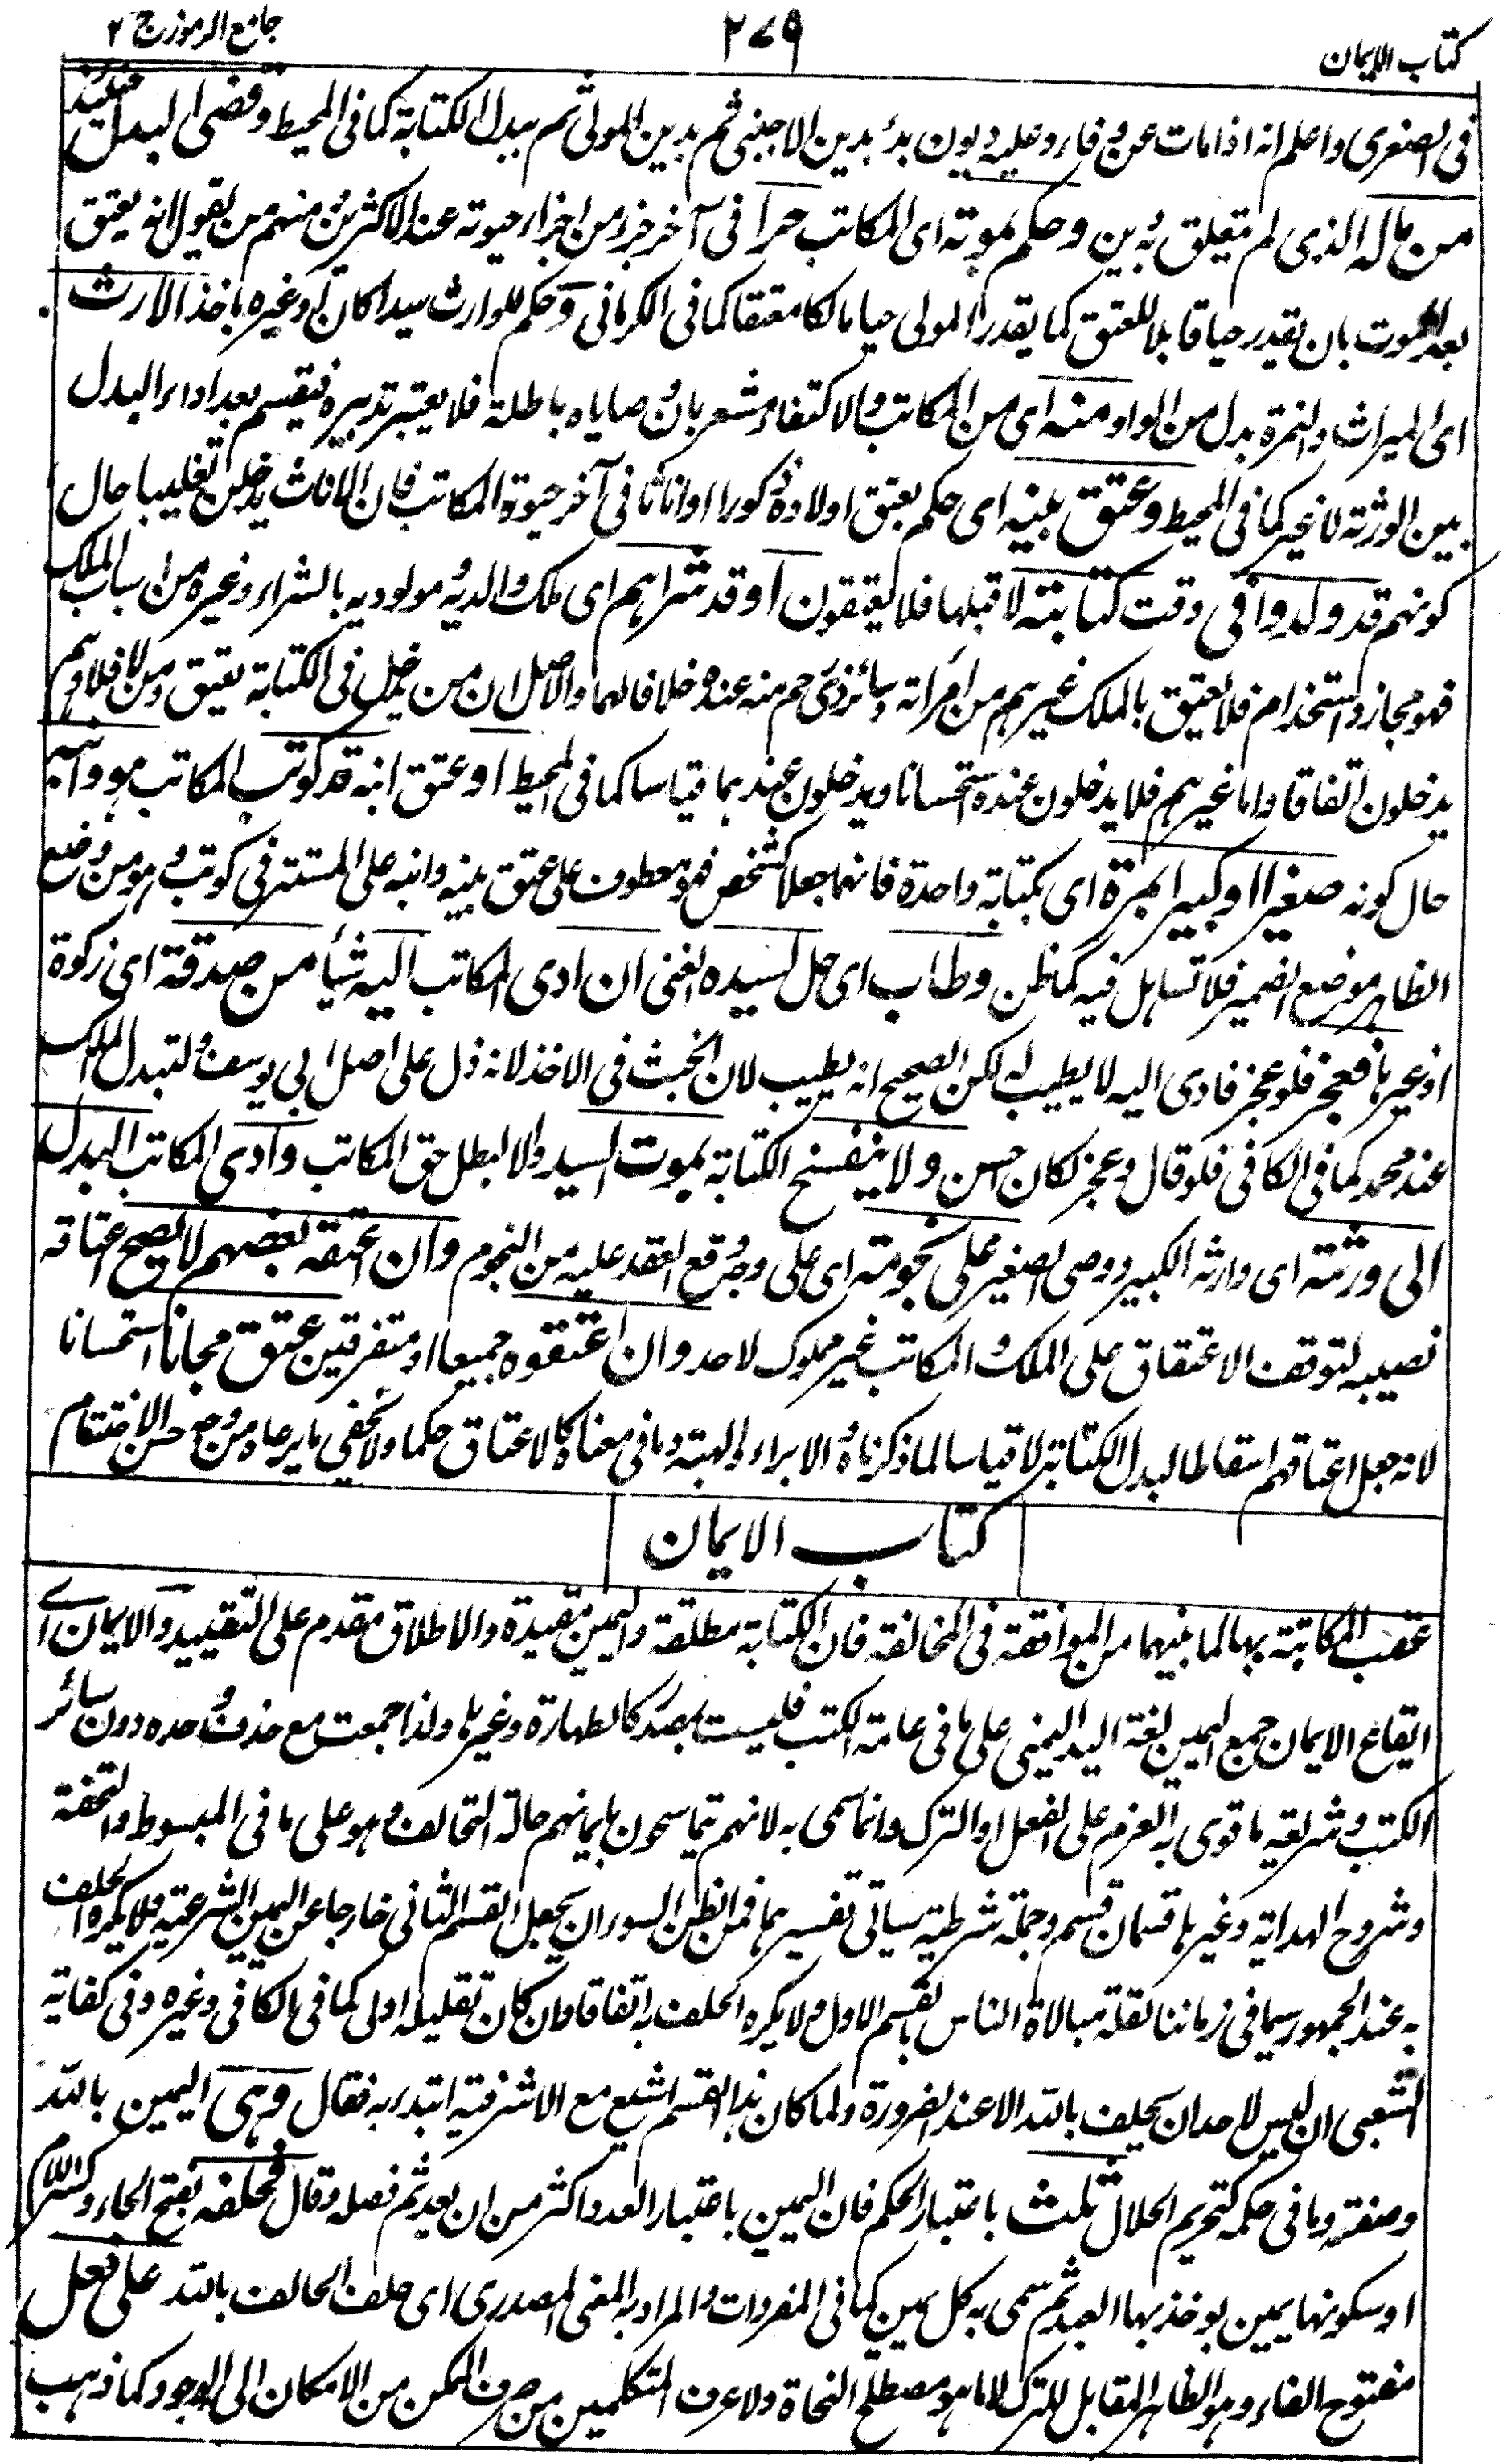 كتاب الايمان
٢٧٩
جامع الرموز ج ٢
فى الصغرى واعلم انه اذا مات عن وفاء وعليه ديون بدئ بدين الاجنبى ثم بدين المولى ثم ببدل الكتابة كما فى المحيط وقضى البدل حينئذ
من ماله الذى لم يتعلق به دين وحكم بموته اى المكاتب حرا فى آخر جزء من اجزاء حيوته عند الاكثرين ومنهم من يقول انه يعتق
بعد الموت بان يقدر حيا قابلا للعتق كما يقدر المولى حيا مالكا معتقا كما فى الكرمانى وحكم للوارث سيدا كان او غيره باخذ الارث
اى الميراث والهمزة بدل من الواو منه اى من المكاتب والاكتفاء مشعر بان وصاياه باطلة فلا يعتبر تدبيره فيقسم بعد اداء البدل
بين الورثة لا غير كما فى المحيط وعتق بنيه اى حكم بعتق اولاده ذكورا او اناثا فى آخر حيوة المكاتب فان الاناث يدخلن تغليبا حال
كونهم قد ولدوا فى وقت كتابته لا قبلها فلا يعتقون او قد شراهم اى ملك والديه ومولوديه بالشراء وغيره من اسباب الملك
فهو مجاز واستخدام فلا يعتق بالملك غيرهم من امرأته وسائر ذى رحم منه عنده خلافا لهما والاصل ان من يدخل فى الكتابة يعتق ومن لا فلا وهم
يدخلون اتفاقا واما غيرهم فلا يدخلون عنده استحسانا ويدخلون عندهما قياسا كما فى المحيط او عتق ابنه قد كوتب المكاتب هو وابنه
حال كونه صغيرا او كبيرا بمرة اى بكتابة واحدة فانهما جعلا كشخص فهو معطوف على عتق بنيه وابنه على المستتر فى كوتب وهو من وضع
الظاهر موضع الضمير فلا تساهل فيه كما ظن وطاب اى حل لسيده الغنى ان ادى المكاتب اليه شيأ من صدقة اى زكوة
او غيرها فعجز فلو عجز فادى اليه لا يطيب له لكن الصحيح انه يطيب لان الخبث فى الاخذ لانه ذل على اصل ابى يوسف ولتبدل الملك
عند محمد كما فى الكافى فلو قال وعجز لكان احسن ولا ينفسخ الكتابة بموت السيد والا لبطل حق المكاتب وادى المكاتب البدل
الى ورثته اى وارثه الكبير ووصى الصغير على نجومه اى على وجه وقع العقد عليه من النجوم وان عتقه بعضهم لا يصح عتاقه
نصيبه لتوقف الاعتقاق على الملك والمكاتب غير مملوك لاحد وان اعتقوه جميعا او متفرقين عتق مجانا استحسانا
لانه جعل اعتاقهم اسقاطا لبدل الكتابة لا قياسا لما ذكرناه والابراء والهبة وما فى معناه كالاعتاق حكما ولا يخفى ما يرعاه من وجوه حسن الاختتام
كتاب الايمان
عقب المكاتبة بها لما بينهما من الموافقة فى المخالفة فان الكتابة مطلقة واليمين مقيدة والاطلاق مقدم على التقييد والايمان اى
ايقاع الايمان جمع اليمين لغة اليد اليمنى على ما فى عامة الكتب فليست بمصدر كالطهارة وغيرها ولذا جمعت مع حذف وحده دون سائر
الكتب وشريعة ما قوى به العزم على الفعل او الترك وانما سمى به لانهم يتماسحون بايمانهم حالة التحالف وهو على ما فى المبسوط والتحفة
وشروح الهداية وغيرها قسمان قسم وجملة شرطية سياتى تفسيرهما فمن الظن السوء ان يجعل القسم الثانى خارجا عن اليمين الشرعية فلا يكره الحلف
به عند الجمهور سيما فى زماننا لقلة مبالاة الناس بالقسم الاول ولا يكره الحلف به اتفاقا وان كان تقليله اولى كما فى الكافى وغيره وفى كفاية
الشعبى ان ليس لاحد ان يحلف بالله الا عند الضرورة ولما كان هذا القسم اشيع مع الاشرفية ابتدء به فقال وهى اليمين بالله
وصفته وما فى حكمه كتحريم الحلال ثلث باعتبار الحكم فان اليمين باعتبار العدد اكثر من ان يعد ثم فصله وقال فحلفه بفتح الحاء وكسر اللام
او سكونها يمين يوخذ بها العبد ثم سمى به كل يمين كما فى المفردات والمراد به المعنى المصدرى اى حلف الحالف بالله على فعل
مفتوح الفاء وهو الظاهر المقابل للترك لا ما هو مصطلح النحاة ولا عرف المتكلمين من صرف الممكن من الامكان الى الوجود كما ذهب